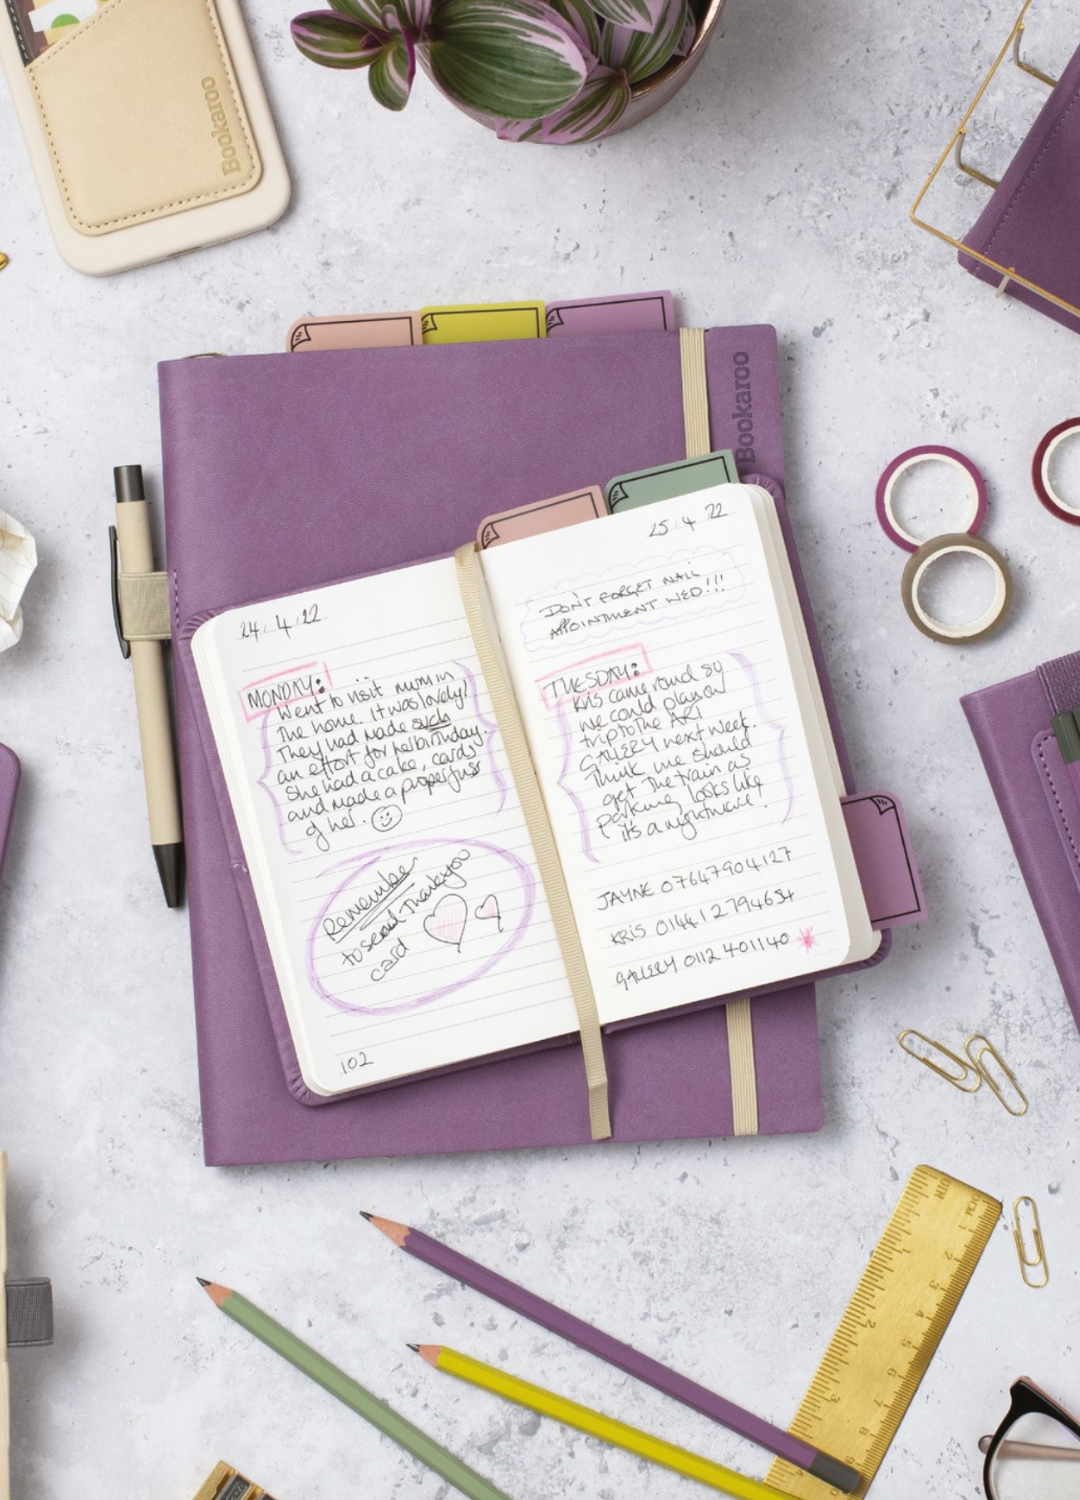 Bookaroo
Bookaroo
24.4.22
MONDAY:
Went to visit mum in
the home. It was lovely!
They had made such
an effort for her birthday.
She had a cake, cards
and made a proper fuss
of her. ☺
Remember
to send Thankyou
card
102
25.4.22
DON'T FORGET NAIL
APPOINTMENT WED!!!
TUESDAY:
Kris came round so
we could plan our
trip to the ART
GALLERY next week.
Think we should
get the train as
parking looks like
it's a nightmare!
JAYNE 07647904127
KRIS 01441 2794634
GALLERY 0112 401140